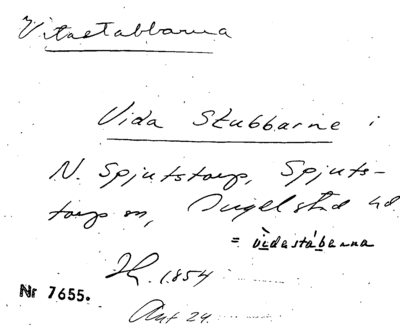 Vitastabbarna
Vida Stubbarne i
N. Spjutstorp, Spjuts-
torp sn, Ingelstad hd
= vìdastábanna
1854
Nr 7655.
Akt 24.